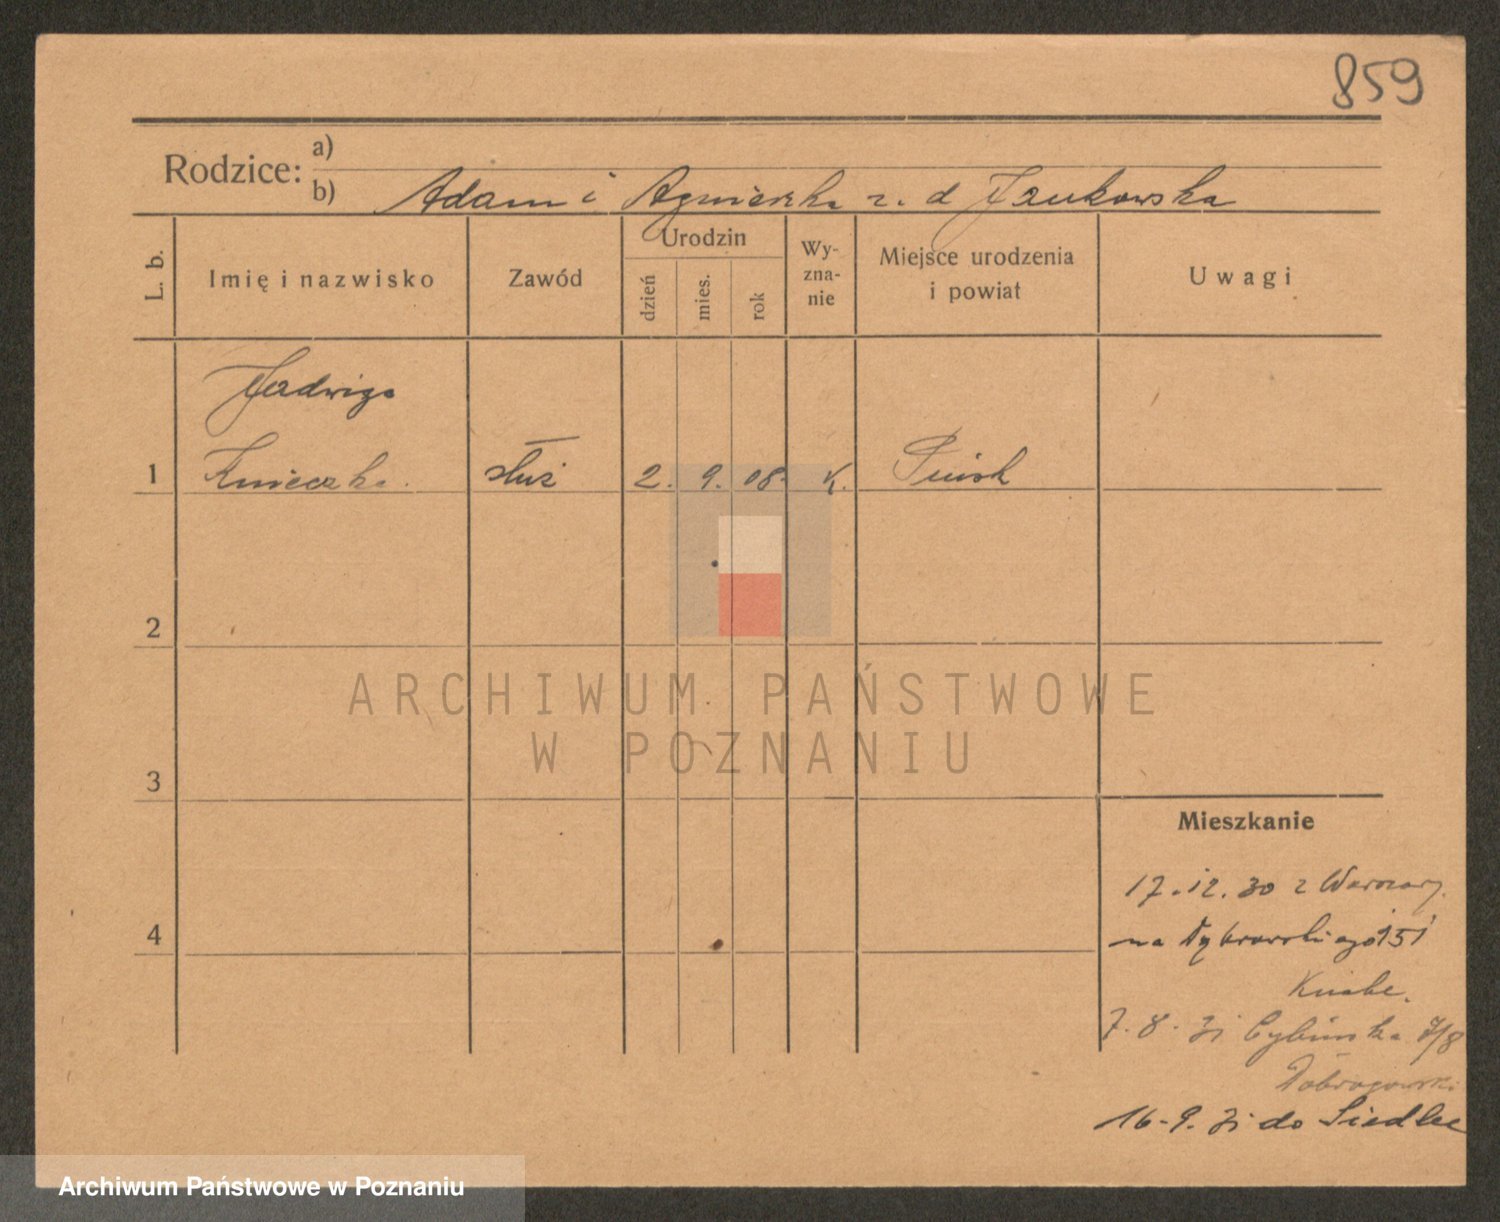 859
Rodzice: a)
b) Adam i Agnieszka z. d Jankowska
L. b.
Imię i nazwisko
Zawód
Urodzin
dzień
mies.
rok
Wy-
zna-
nie
Miejsce urodzenia
i powiat
Uwagi
Jadwiga
1 Knieczka. służ 2. 9. 08. K. Pińsk
2
ARCHIWUM PAŃSTWOWE
W POZNANIU
3
Mieszkanie
4
17.12.30 z Warszawy.
na Dąbrowskiego 151
Knabe.
7.8.31 Cybińska 7/8
Dobrogowski
16-9.31 do Siedlec
Archiwum Państwowe w Poznaniu